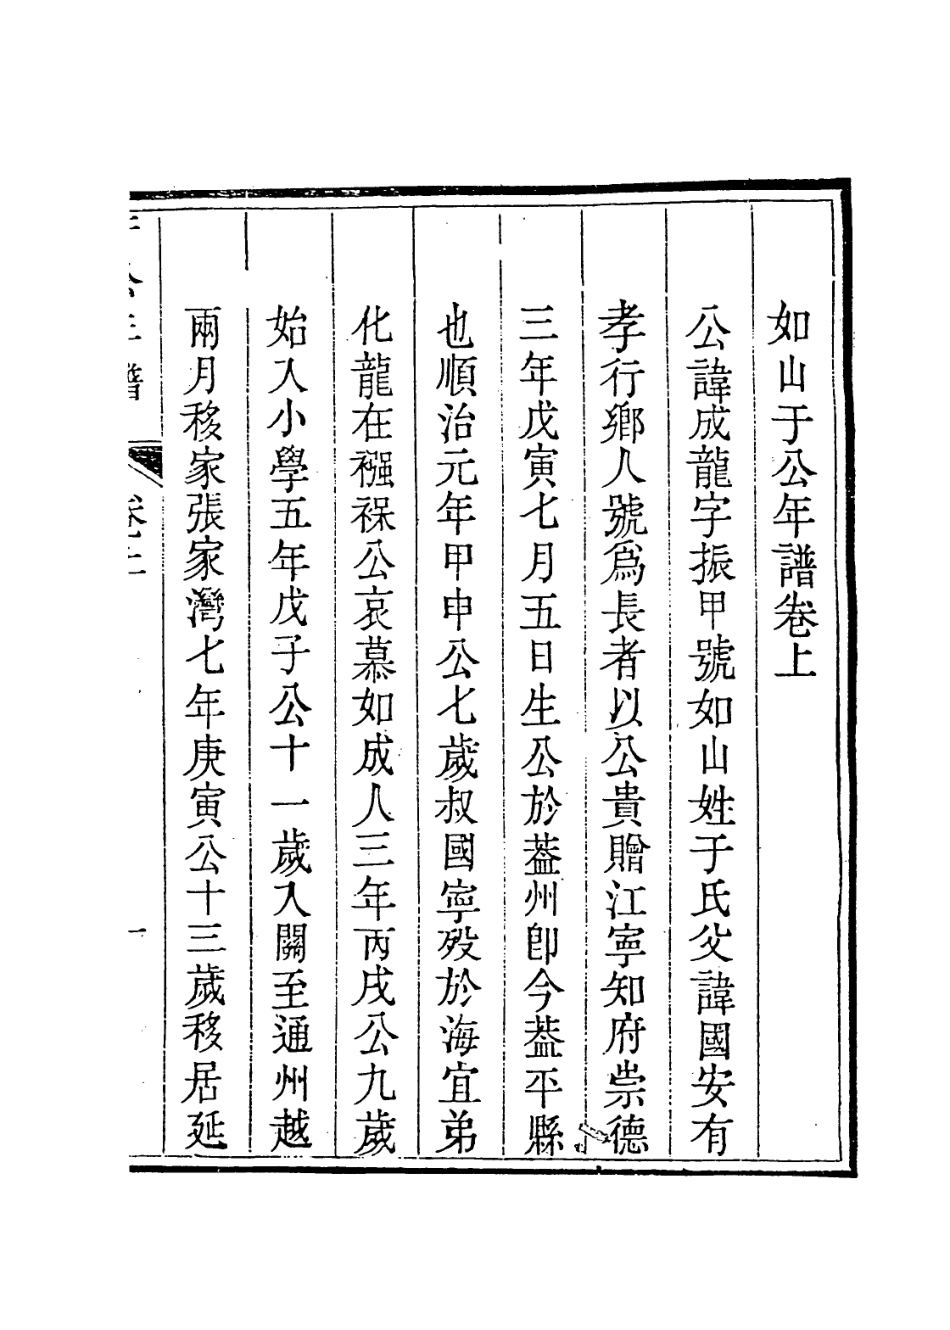 如山于公年譜卷上
公諱成龍字振甲號如山姓于氏父諱國安有
孝行鄉人號爲長者以公貴贈江寧知府崇德
三年戊寅七月五日生公於葢州卽今葢平縣
也順治元年甲申公七歲叔國寧歿於海宜弟
化龍在襁褓公哀慕如成人三年丙戌公九歲
始入小學五年戊子公十一歲入關至通州越
兩月移家張家灣七年庚寅公十三歲移居延
于公年譜
卷上
一